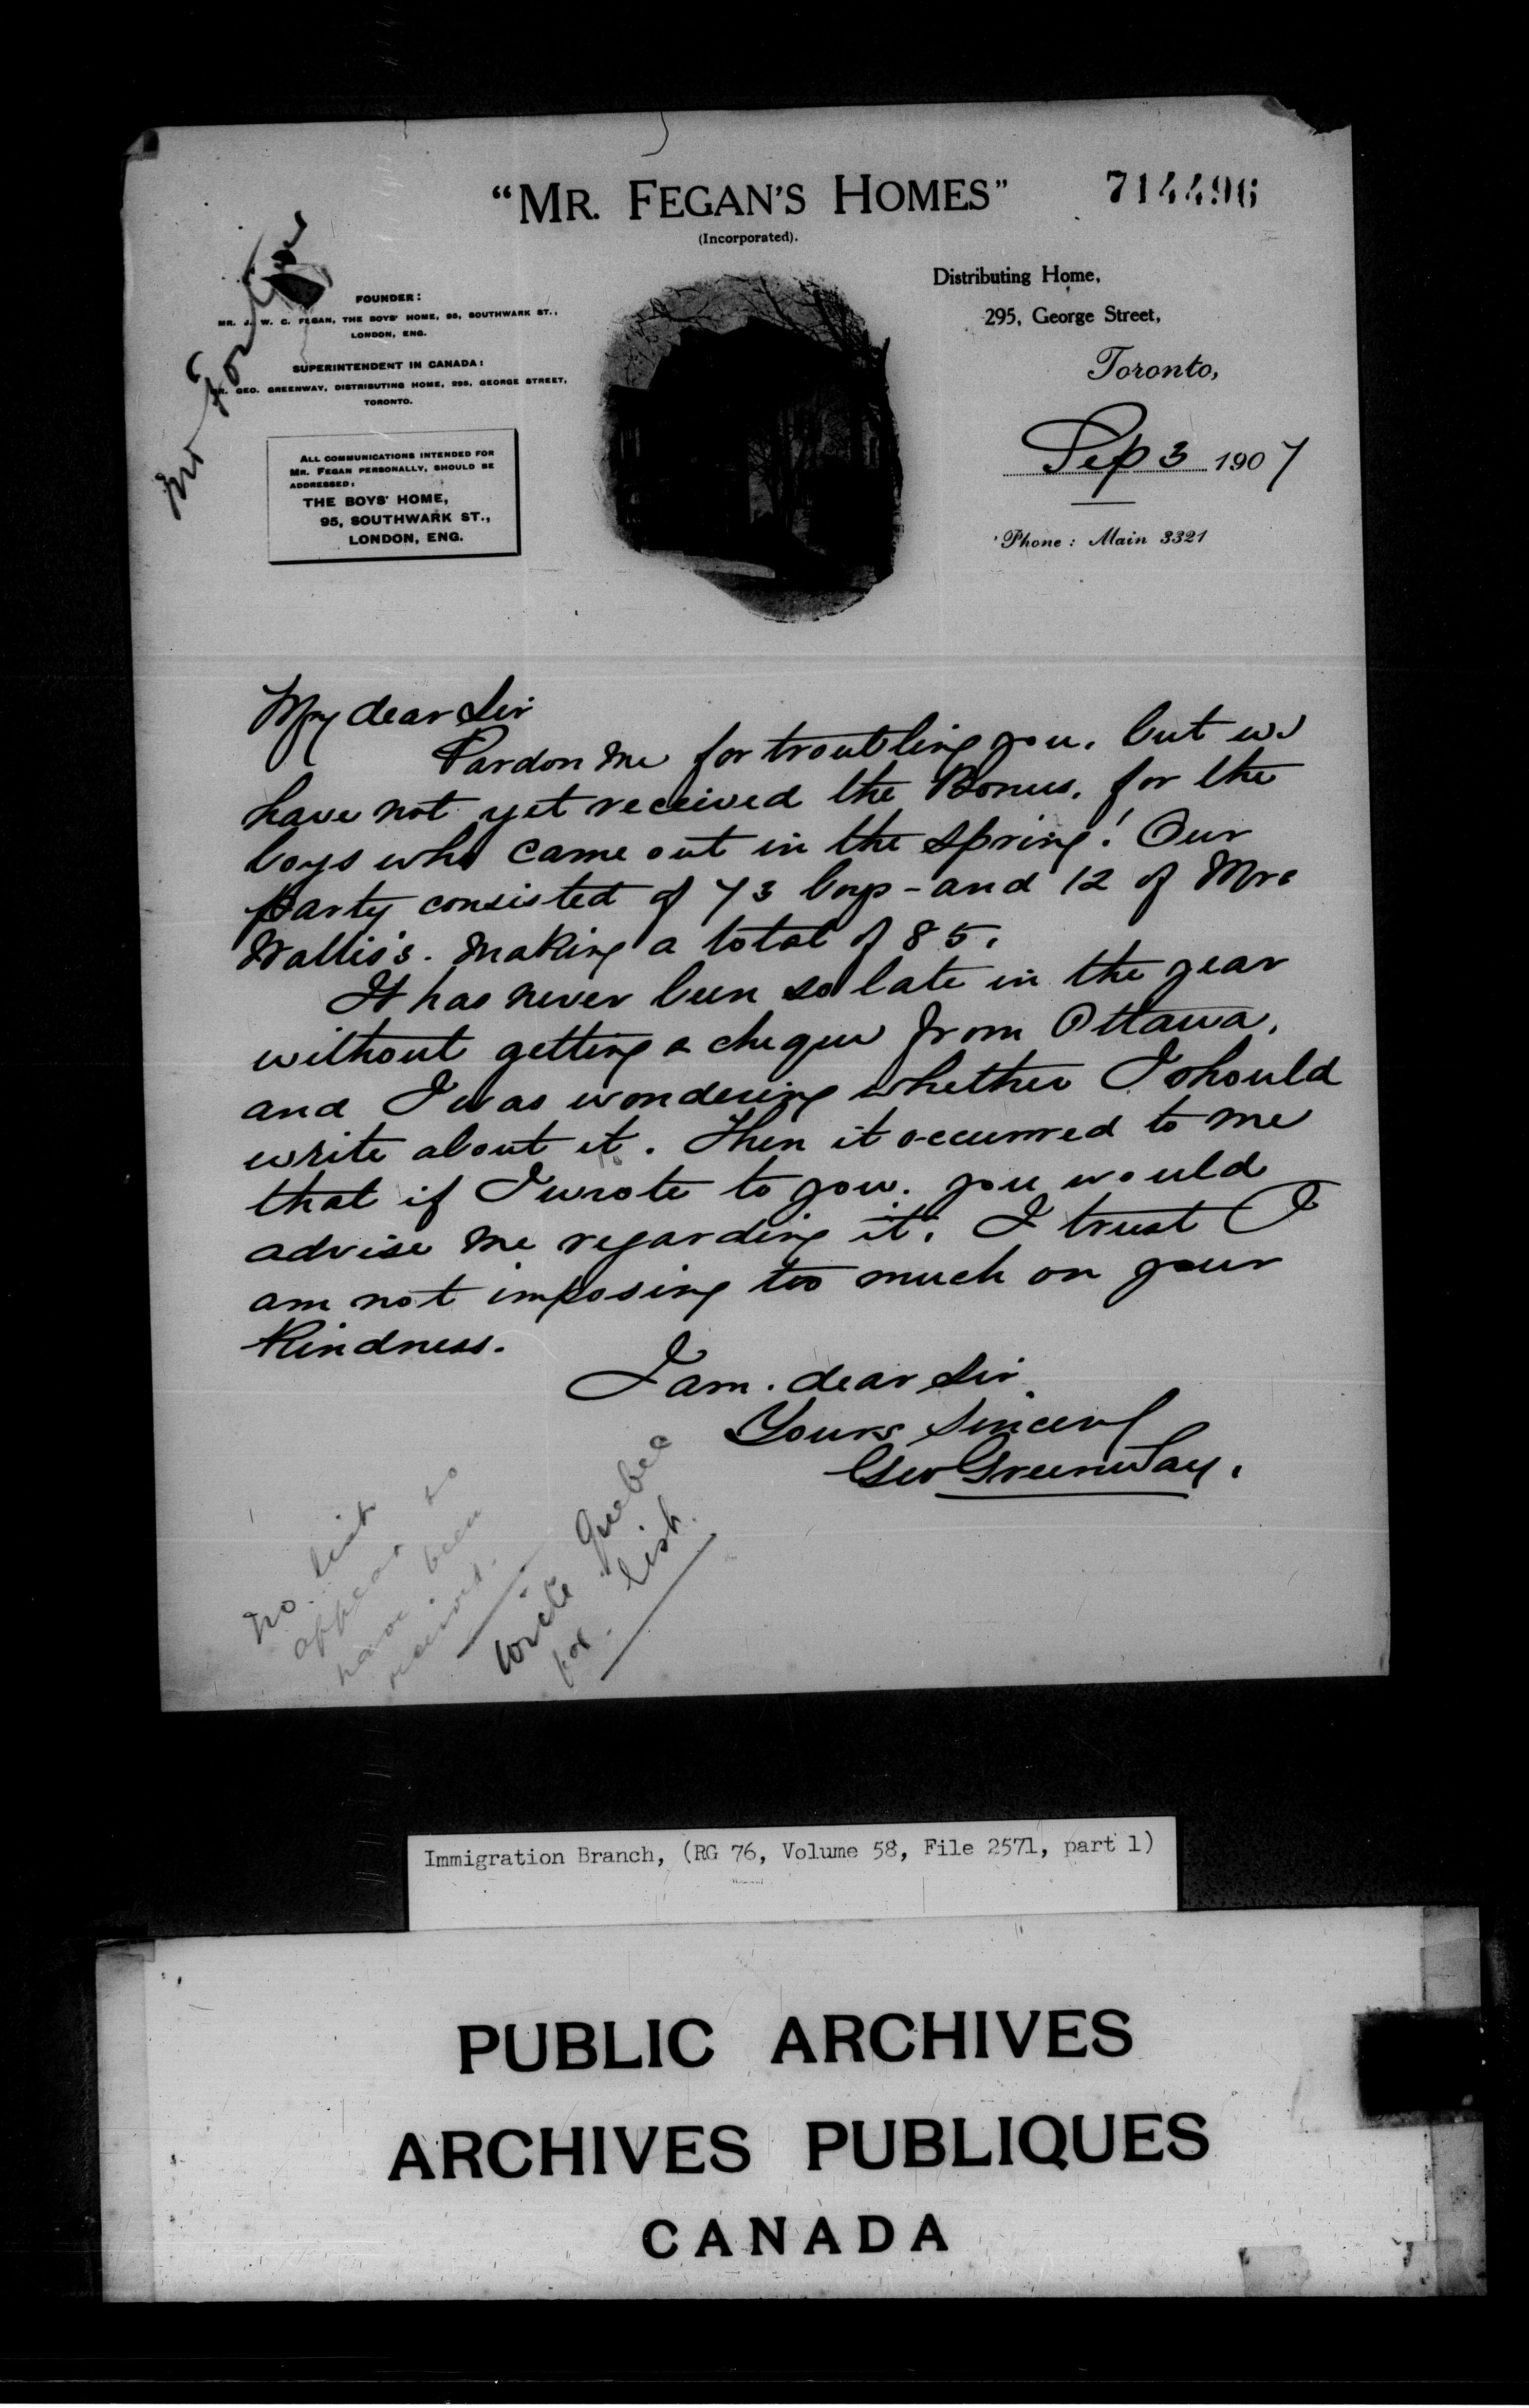 "MR. FEGAN'S HOMES"
714496
(Incorporated).
FOUNDER:
MR. J. W. C. FEGAN, THE BOYS' HOME, 95, SOUTHWARK ST.,
LONDON, ENG.
SUPERINTENDENT IN CANADA:
MR. GEO. GREENWAY, DISTRIBUTING HOME, 295, GEORGE STREET,
TORONTO.
ALL COMMUNICATIONS INTENDED FOR
MR. FEGAN PERSONALLY, SHOULD BE
ADDRESSED:
THE BOYS' HOME,
95, SOUTHWARK ST.,
LONDON, ENG.
Distributing Home,
295, George Street,
Toronto,
Sep 3 1907
Phone: Main 3321
My dear Sir
Pardon me for troubling you, but we
have not yet received the Bonus, for the
boys who came out in the Spring! Our
party consisted of 73 boys - and 12 of Mrs
Wallis's. Making a total of 85.
It has never been so late in the year
without getting a cheque from Ottawa,
and I was wondering whether I should
write about it. Then it occurred to me
that if I wrote to you. you would
advise me regarding it. I trust I
am not imposing too much on your
Kindness.
I am. dear Sir
Yours Sincerely
Geo Greenway.
No list
appears to
have been
received.
Write Quebec
for list.
Immigration Branch, (RG 76, Volume 58, File 2571, part 1)
PUBLIC ARCHIVES
ARCHIVES PUBLIQUES
CANADA